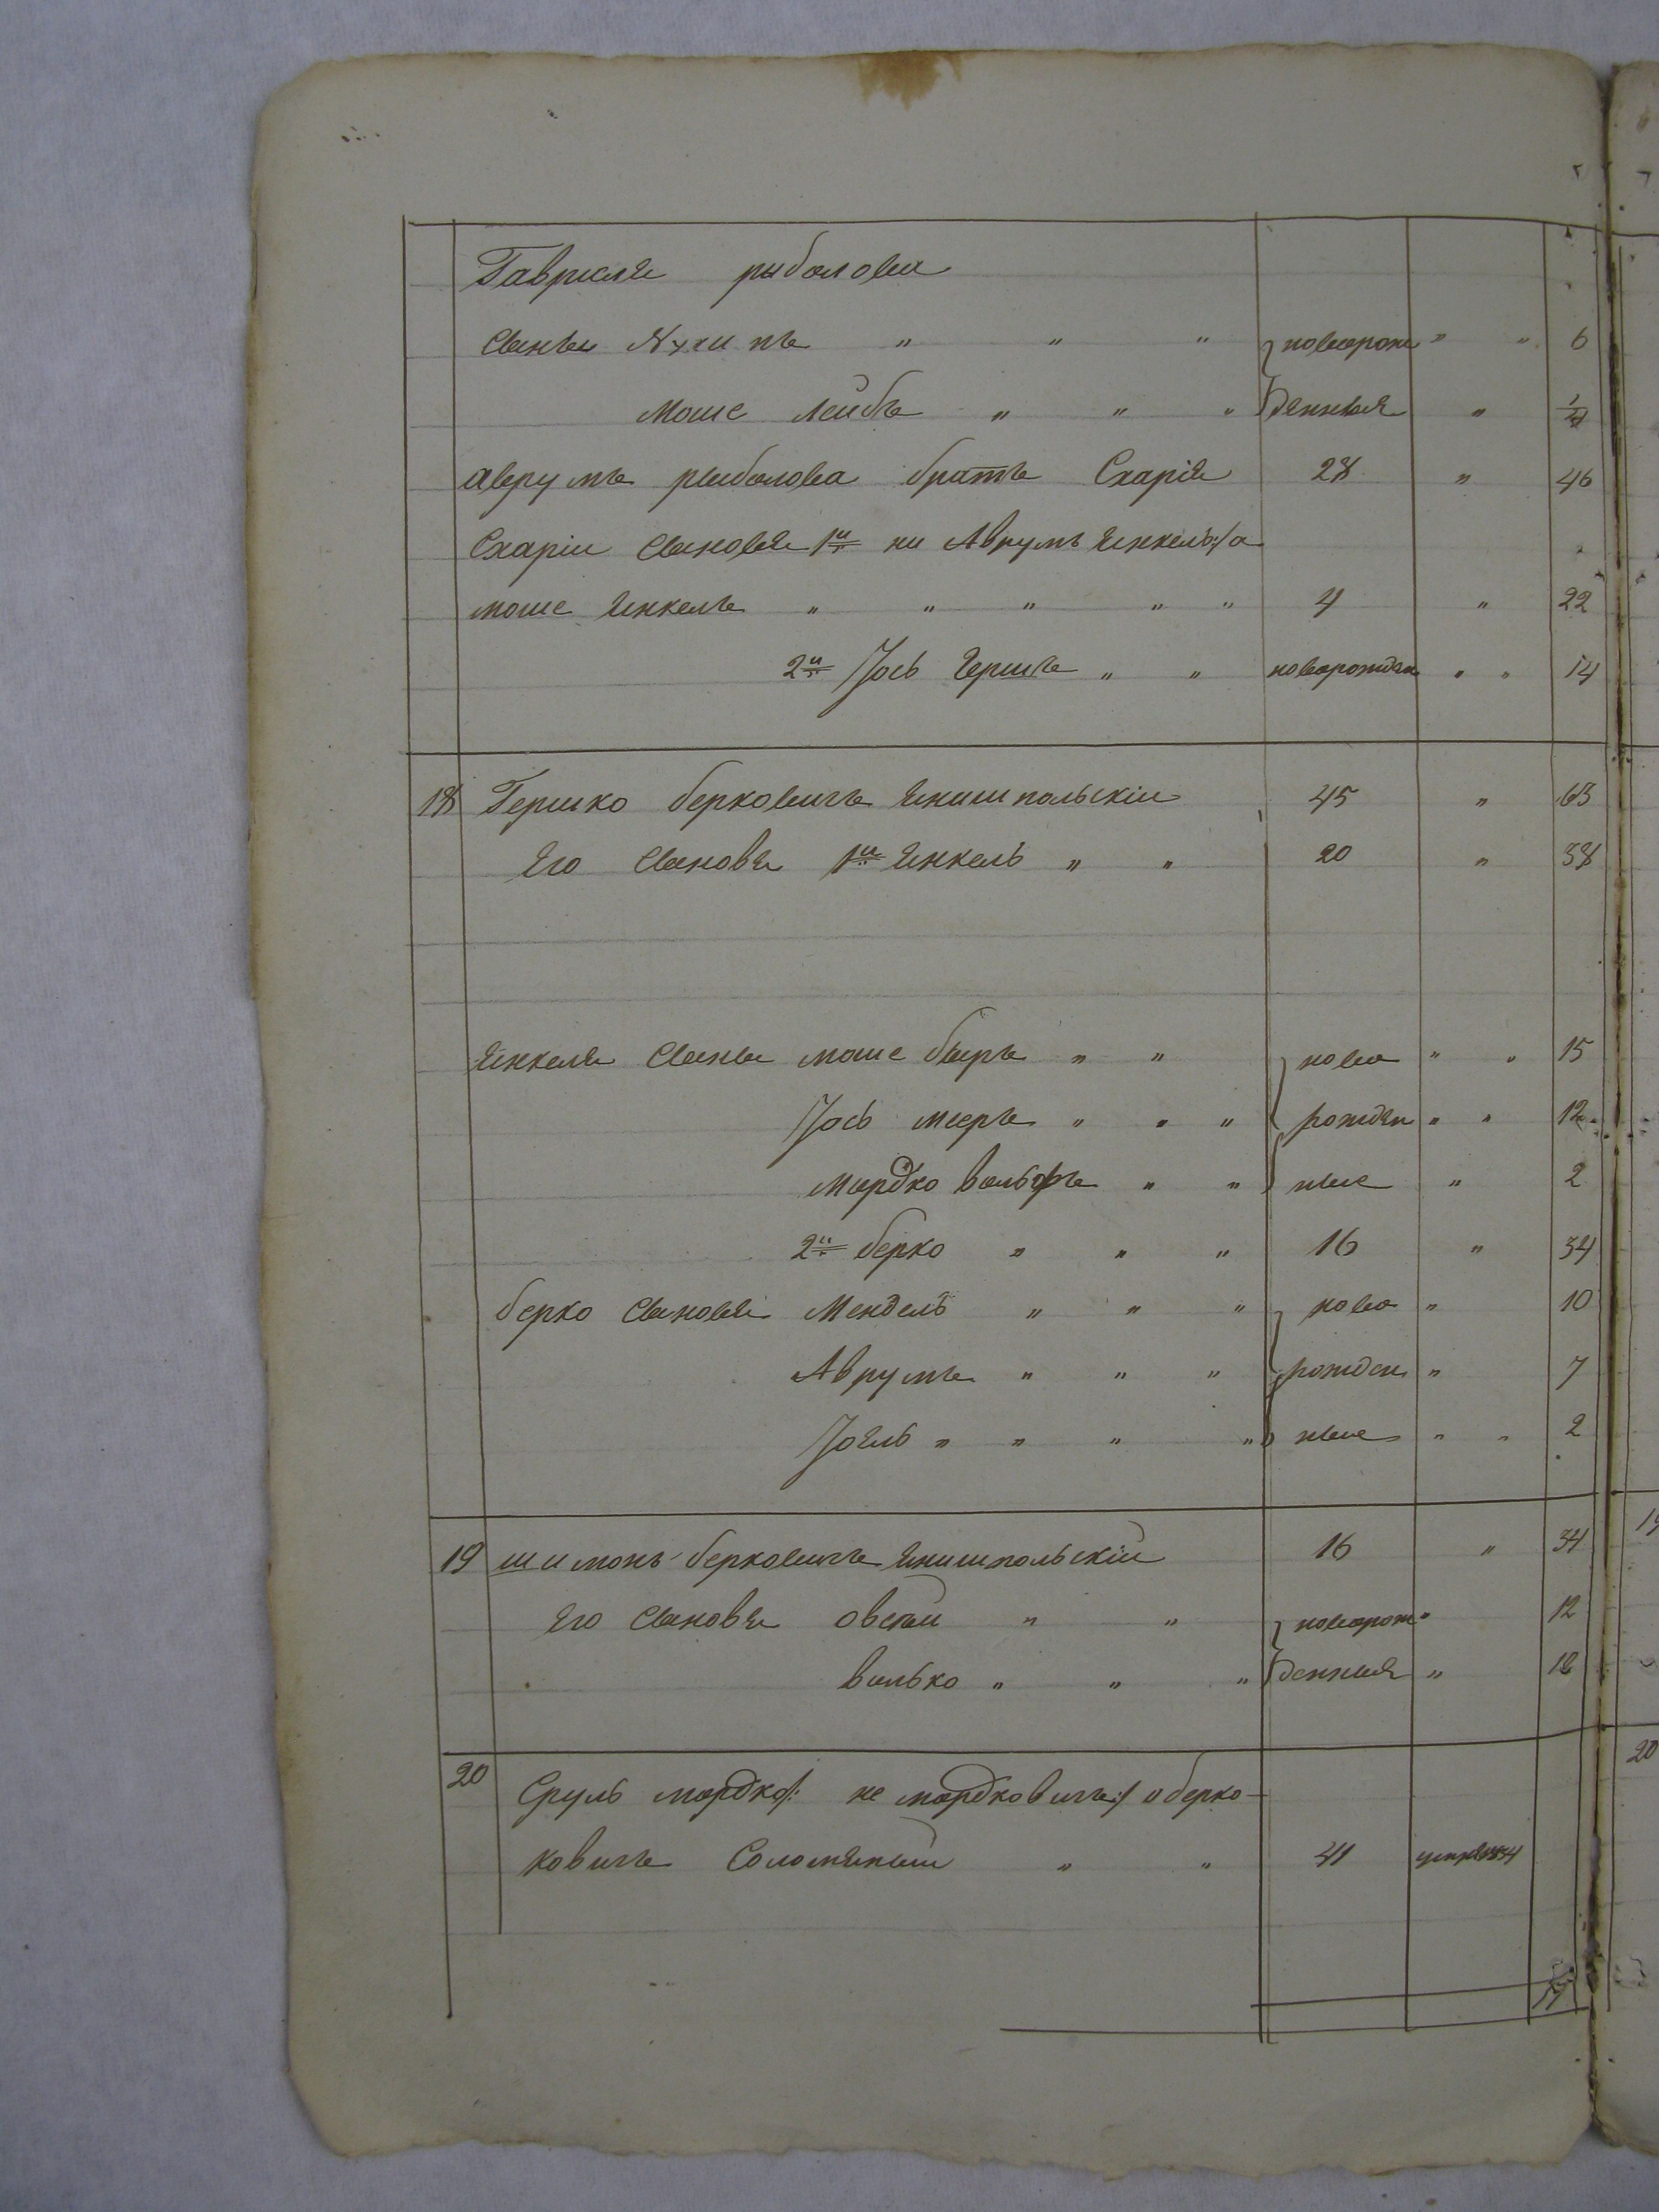 Гавриля рыболова
Сынъ Нухимъ " " " новорож " " 6
Моше Лейбъ " " " денныя " 1/4
Аврумъ рыболова братъ Схарія 28 " 46
Схаріи Сыновья 1й ни Аврумъ Янкель:/а
Моше Янкель " " " " " 4 " 22
2й Іось Гершъ " " новорожден " " 14
18 Гершко Берковичъ Янишпольскій 45 " 63
Его Сыновя 1й Янкель " " 20 " 38
Янкеля Сыны Моше Беръ " " ново " " 15
Іось Мееръ " " " рожден " " 12
Мордко Вольфъ " " ные " 2
2й Берко " " " 16 " 34
Берко Сыновья Мендель " " " ново " 10
Аврумъ " " " рожден " 7
Іоель " " " " ные " " 2
19 Шимонъ Берковичъ Янишпольскій 16 " 34
Его Сыновя Овсѣй " " новорож " 12
Волько " " " денныя "
20 Сруль Мордко/: не Мордковичъ:/ а Берко-
ковичъ Соломяный " " 41 1834